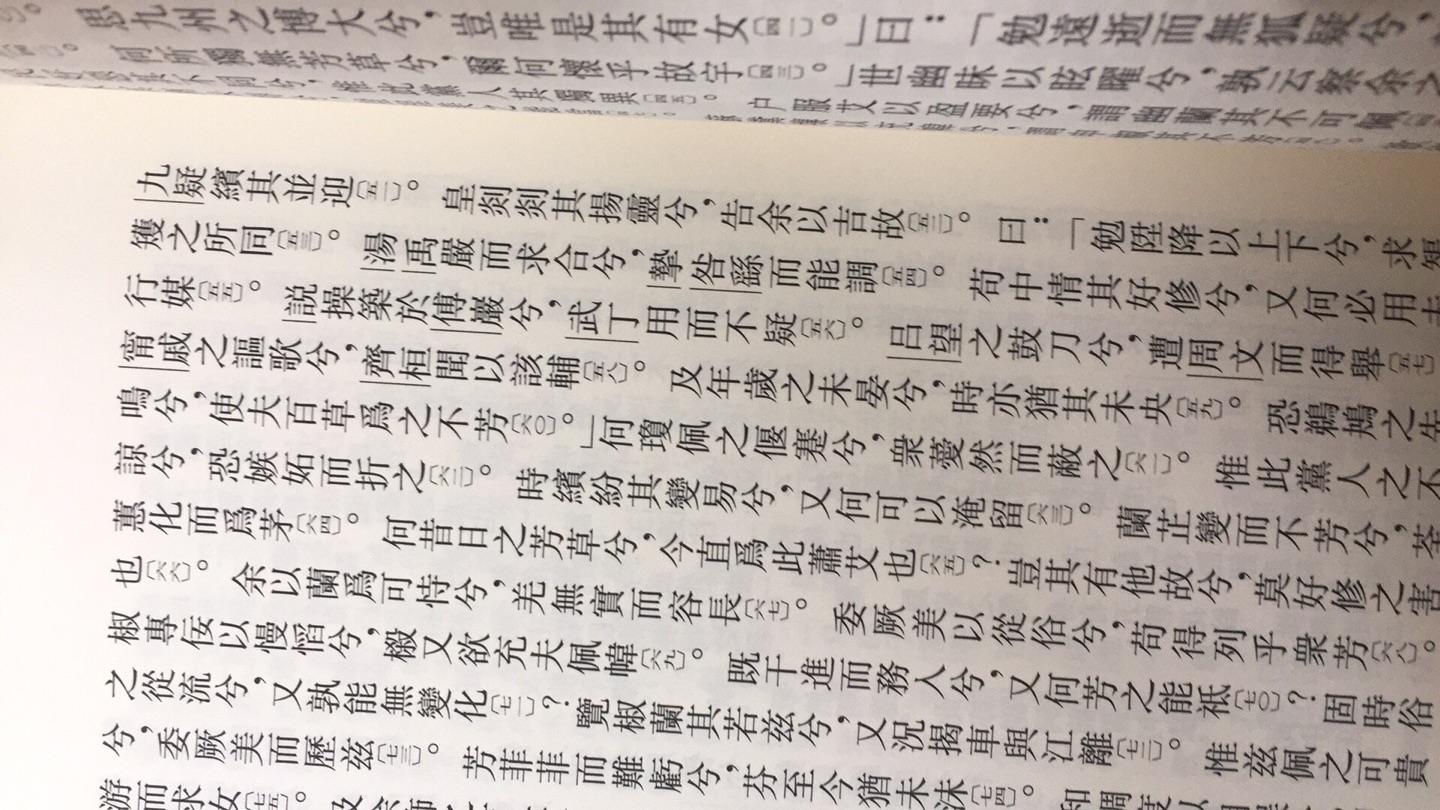 思九州之博大兮，豈唯是其有女〔四二〕。」曰：「勉遠逝而無狐疑兮，
何所獨無芳草兮，爾何懷乎故宇〔四三〕。」世幽昧以眩曜兮，孰云察余之
其不同兮，惟此黨人其獨異〔四五〕。　户服艾以盈要兮，謂幽蘭其不可佩
九疑繽其並迎〔五一〕。　皇剡剡其揚靈兮，告余以吉故〔五二〕。　曰：「勉陞降以上下兮，求
矱之所同〔五三〕。　湯禹嚴而求合兮，摯咎繇而能調〔五四〕。　苟中情其好修兮，又何必用夫
行媒〔五五〕。　説操築於傅巖兮，武丁用而不疑〔五六〕。　吕望之鼓刀兮，遭周文而得舉〔五七
甯戚之謳歌兮，齊桓聞以該輔〔五八〕。　及年歲之未晏兮，時亦猶其未央〔五九〕。　恐鵜鴂之先
鳴兮，使夫百草爲之不芳〔六〇〕。」何瓊佩之偃蹇兮，衆薆然而蔽之〔六一〕。　惟此黨人之不
諒兮，恐嫉妬而折之〔六二〕。　時繽紛其變易兮，又何可以淹留〔六三〕。　蘭芷變而不芳兮，荃
蕙化而爲茅〔六四〕。　何昔日之芳草兮，今直爲此蕭艾也〔六五〕？豈其有他故兮，莫好修之害
也〔六六〕。　余以蘭爲可恃兮，羌無實而容長〔六七〕。　委厥美以從俗兮，苟得列乎衆芳〔六八〕。
椒專佞以慢慆兮，樧又欲充夫佩幃〔六九〕。　既干進而務入兮，又何芳之能祗〔七〇〕？固時俗
之從流兮，又孰能無變化〔七一〕？覽椒蘭其若兹兮，又況揭車與江離〔七二〕。　惟兹佩之可貴
兮，委厥美而歷兹〔七三〕。　芳菲菲而難虧兮，芬至今猶未沬〔七四〕。　和調度以自
游而求女〔七五〕。　及余飾